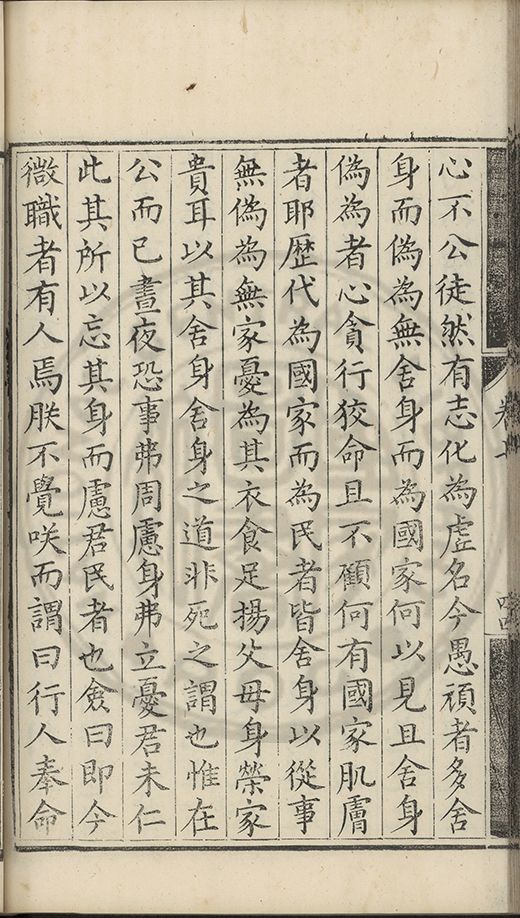 心不公徒然有志化為虛名今愚頑者多舍
身而偽為無舍身而為國家何以見且舍身
偽為者心貪行狡命且不顧何有國家肌膚
者耶歷代為國家而為民者皆舍身以從事
無偽為無家憂為其衣食足揚父母身榮家
貴耳以其舍身舍身之道非死之謂也惟在
公而已晝夜恐事弗周慮身弗立憂君未仁
此其所以忘其身而慮君民者也僉曰即今
微職者有人焉朕不覺咲而謂曰行人奉命